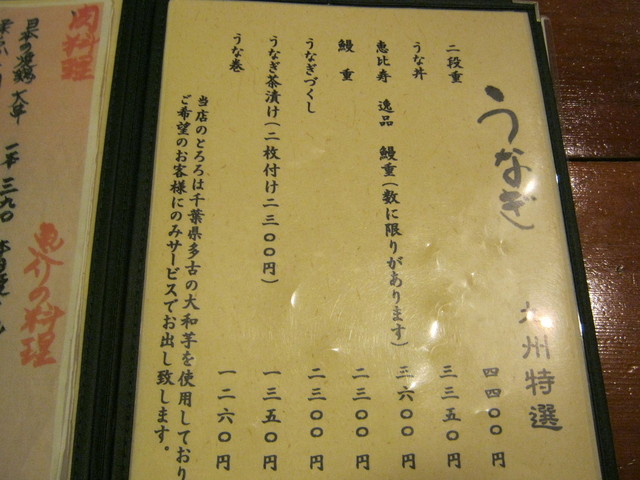 うなぎ 九州特選
二段重 四四〇〇円
うな丼 三三五〇円
恵比寿 逸品 鰻重(数に限りがあります) 三六〇〇円
鰻重 二三〇〇円
うなぎづくし 二三〇〇円
うなぎ茶漬け(二枚付け二三〇〇円) 一三五〇円
うな巻 一二六〇円
当店のとろろは千葉県多古の大和芋を使用しており
ご希望のお客様にのみサービスでお出し致します。
肉料理
魚介の料理